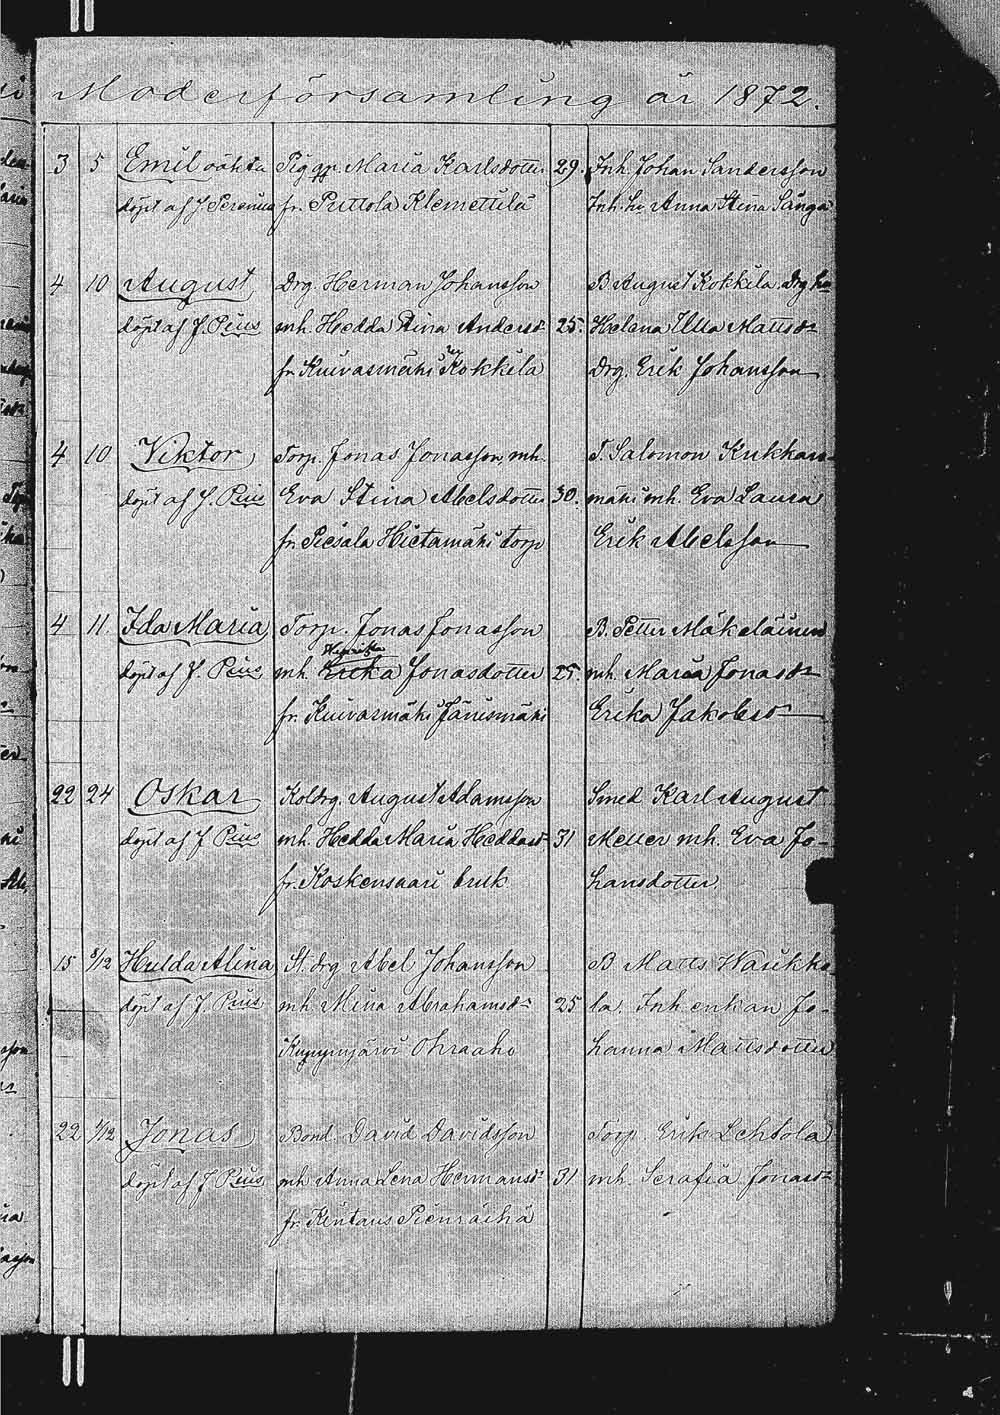 Moderförsamling år 1872.
3 5 Emil oäkta Pig Maria Karlsdotter 29. Inh. Johan Sandersson
döpt af J. fr. Puttola Klemettilä Inh. hu Anna Stina Sånga
4 10 August Drg. Herman Johansson B August Kokkila. Drg hu
döpt af J. Pius mh. Hedda Stina Andersd:r 25. Helena Ulla Mattsd:r
fr. Kuivasmäki Kokkila Drg. Erik Johansson
4 10 Viktor Torp. Jonas Jonasson, mh. T. Salomon Kukkaro-
döpt af J. Pius Eva Stina Abelsdotter 30. mäki mh. Eva Laura
fr. Piesala Hietamäki torp Erik Abelsson
4 11. Ida Maria Torp. Jonas Jonasson B. Petter Mäkeläinen
Henrika
döpt af J. Pius mh. Erika Jonasdotter 25. mh. Maria Jonasd:r
fr. Kuivasmäki Jänismäki Erika Jakobsd:r
22 24 Oskar Koldrg. August Adamsson Smed Karl August
döpt af J Pius mh. Hedda Maria Heddasd:r 31 Meller mh. Eva Jo-
fr. Koskensaari bruk hansdotter
15 8/12 Hulda Alina St. drg Abel Johansson B Matts Warikka
döpt af J. Pius mh. Mina Abrahamsd:r 25 la. Inh. enkan Jo-
Kuppujärvi Ohraaho hanna Mattsdotter
22 1/12 Jonas Bond. David Davidsson Torp. Erik Lehtola
döpt af J Pius mh Anna Lena Hermansd:r 31 mh. Serafia Jonasd:r
fr. Kintaus Pienräihä